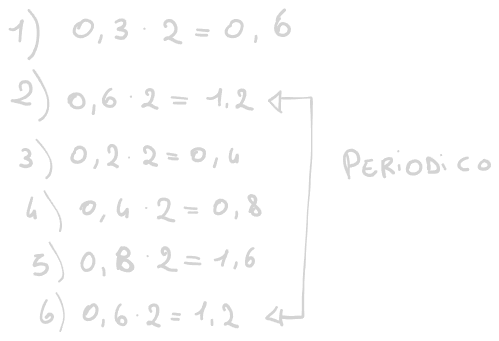 1) 0,3 · 2 = 0,6
2) 0,6 · 2 = 1,2
3) 0,2 · 2 = 0,4
4) 0,4 · 2 = 0,8
5) 0,8 · 2 = 1,6
6) 0,6 · 2 = 1,2
PERIODICO